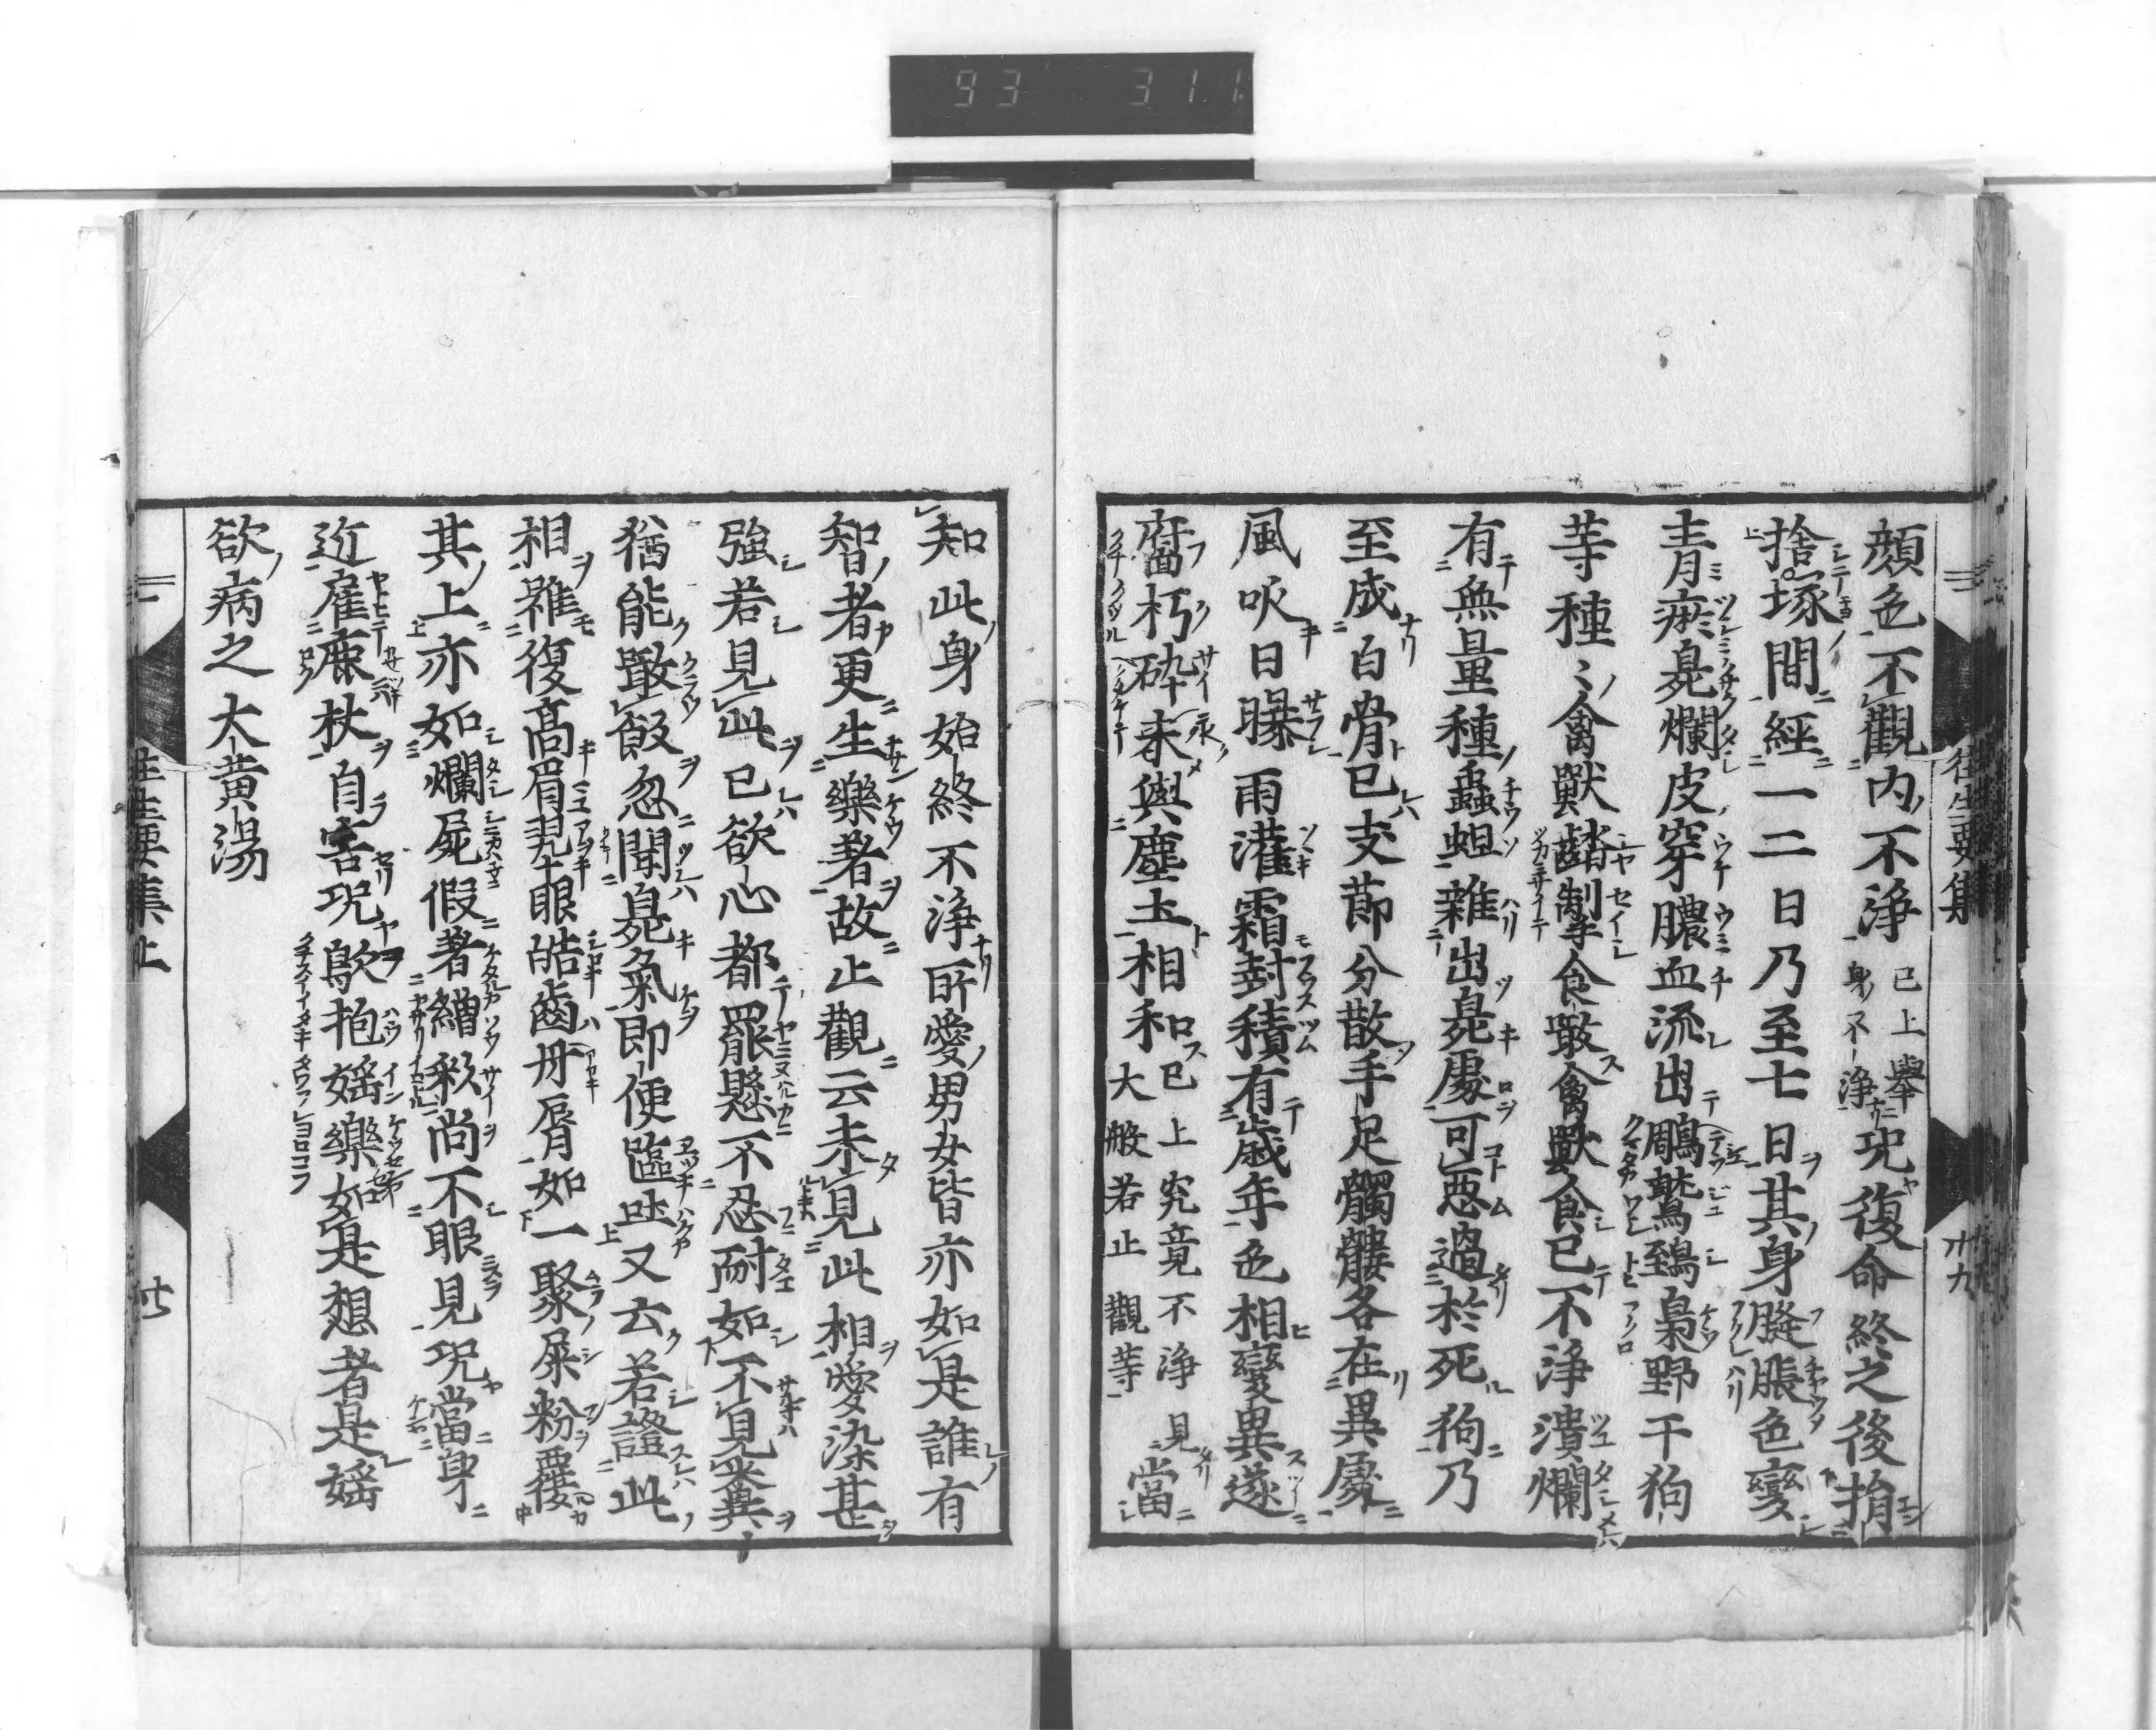 93 311
往生要集
十九
顔色不觀内不淨已上擧身不淨況復命終之後捐
捨塚間經一二日乃至七日其身膖脹色變
青瘀臰爛皮穿膿血流出鵰鷲鵄梟野干狗
等種〻禽獸䶩掣食噉禽獸食已不淨潰爛
有無量種蟲蛆雜出臰處可惡過於死狗乃
至成白骨已支節分散手足髑髏各在異處
風吹日曝雨灌霜封積有歲年色相變異遂
腐朽碎末與塵土相和已上究竟不淨見大般若止觀等當
知此身始終不淨所愛男女皆亦如是誰有
智者更生樂著故止觀云未見此相愛染甚
強若見此已欲心都罷懸不忍耐如不見糞
猶能噉飯忽聞臰氣即便嘔吐又云若證此
相雖復高眉翠眼皓齒丹脣如一聚屎粉覆
其上亦如爛屍假著繒綵尚不眼見況當身
近雇鹿杖自害況歍抱婬樂如是想者是婬
欲病之大黄湯
往生要集上
廿